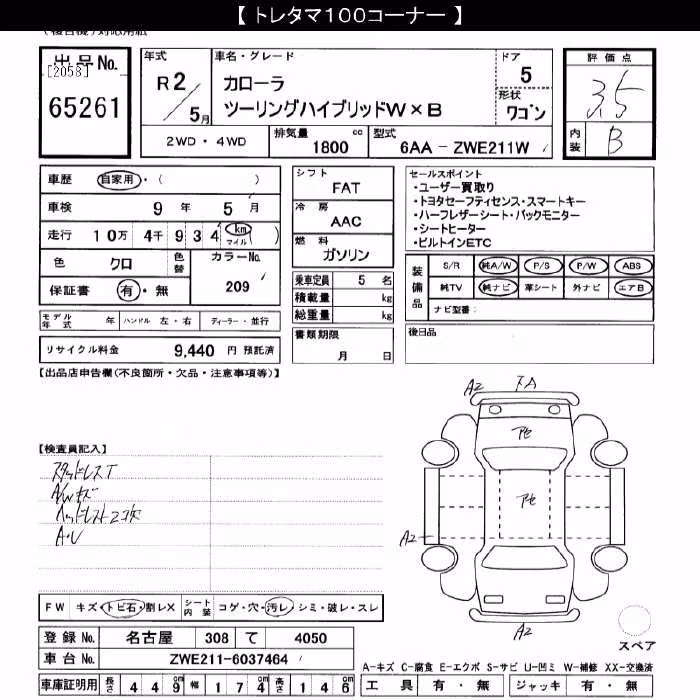 【 トレタマ100コーナー 】
出品No.
[2058]
65261
年式
R2/5月
車名・グレード
カローラ
ツーリングハイブリッドW×B
ドア
5
形状
ワゴン
評価点
3.5
内装
B
2WD・4WD
排気量
1800
cc
型式
6AA－ZWE211W
車歴
自家用・( )
車検
9年 5月
走行
10万 4千 9 3 4 (km マイル)
色
クロ
色替
カラーNo.
209
保証書
有・無
モデル年式
年
ハンドル
左・右
ディーラー・並行
リサイクル料金
9,440 円 預託済
シフト
FAT
冷房
AAC
燃料
ガソリン
乗車定員
5 名
積載量
kg
総重量
kg
書類期限
月 日
セールスポイント
・ユーザー買取り
・トヨタセーフティセンス・スマートキー
・ハーフレザーシート・バックモニター
・シートヒーター
・ビルトインETC
装備品
S/R 純A/W P/S P/W ABS
純TV 純ナビ 革シート 外ナビ エアB
ナビ型番:
後日品
【出品店申告欄(不良箇所・欠品・注意事項等)】
【検査員記入】
スタッドレスT
A/Wキズ
ヘッドレスト2コ欠
A・U
A2
F.A
アセ
アセ
A2
A2
FW
キズ・トビ石・割レX
シート内装
コゲ・穴・汚レ・シミ・破レ・スレ
登録No.
名古屋 308 て 4050
車台No.
ZWE211-6037464
車庫証明用
長さ 449cm 幅 174cm 高さ 146cm
スペア
A-キズ C-腐食 E-エクボ S-サビ U-凹ミ W-補修 XX-交換済
工具 有・無 ジャッキ 有・無